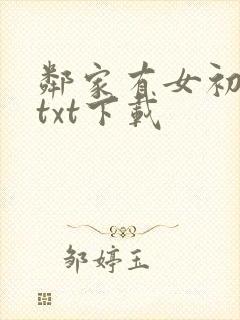 鄰家有女初
txt下載
邹婷玉